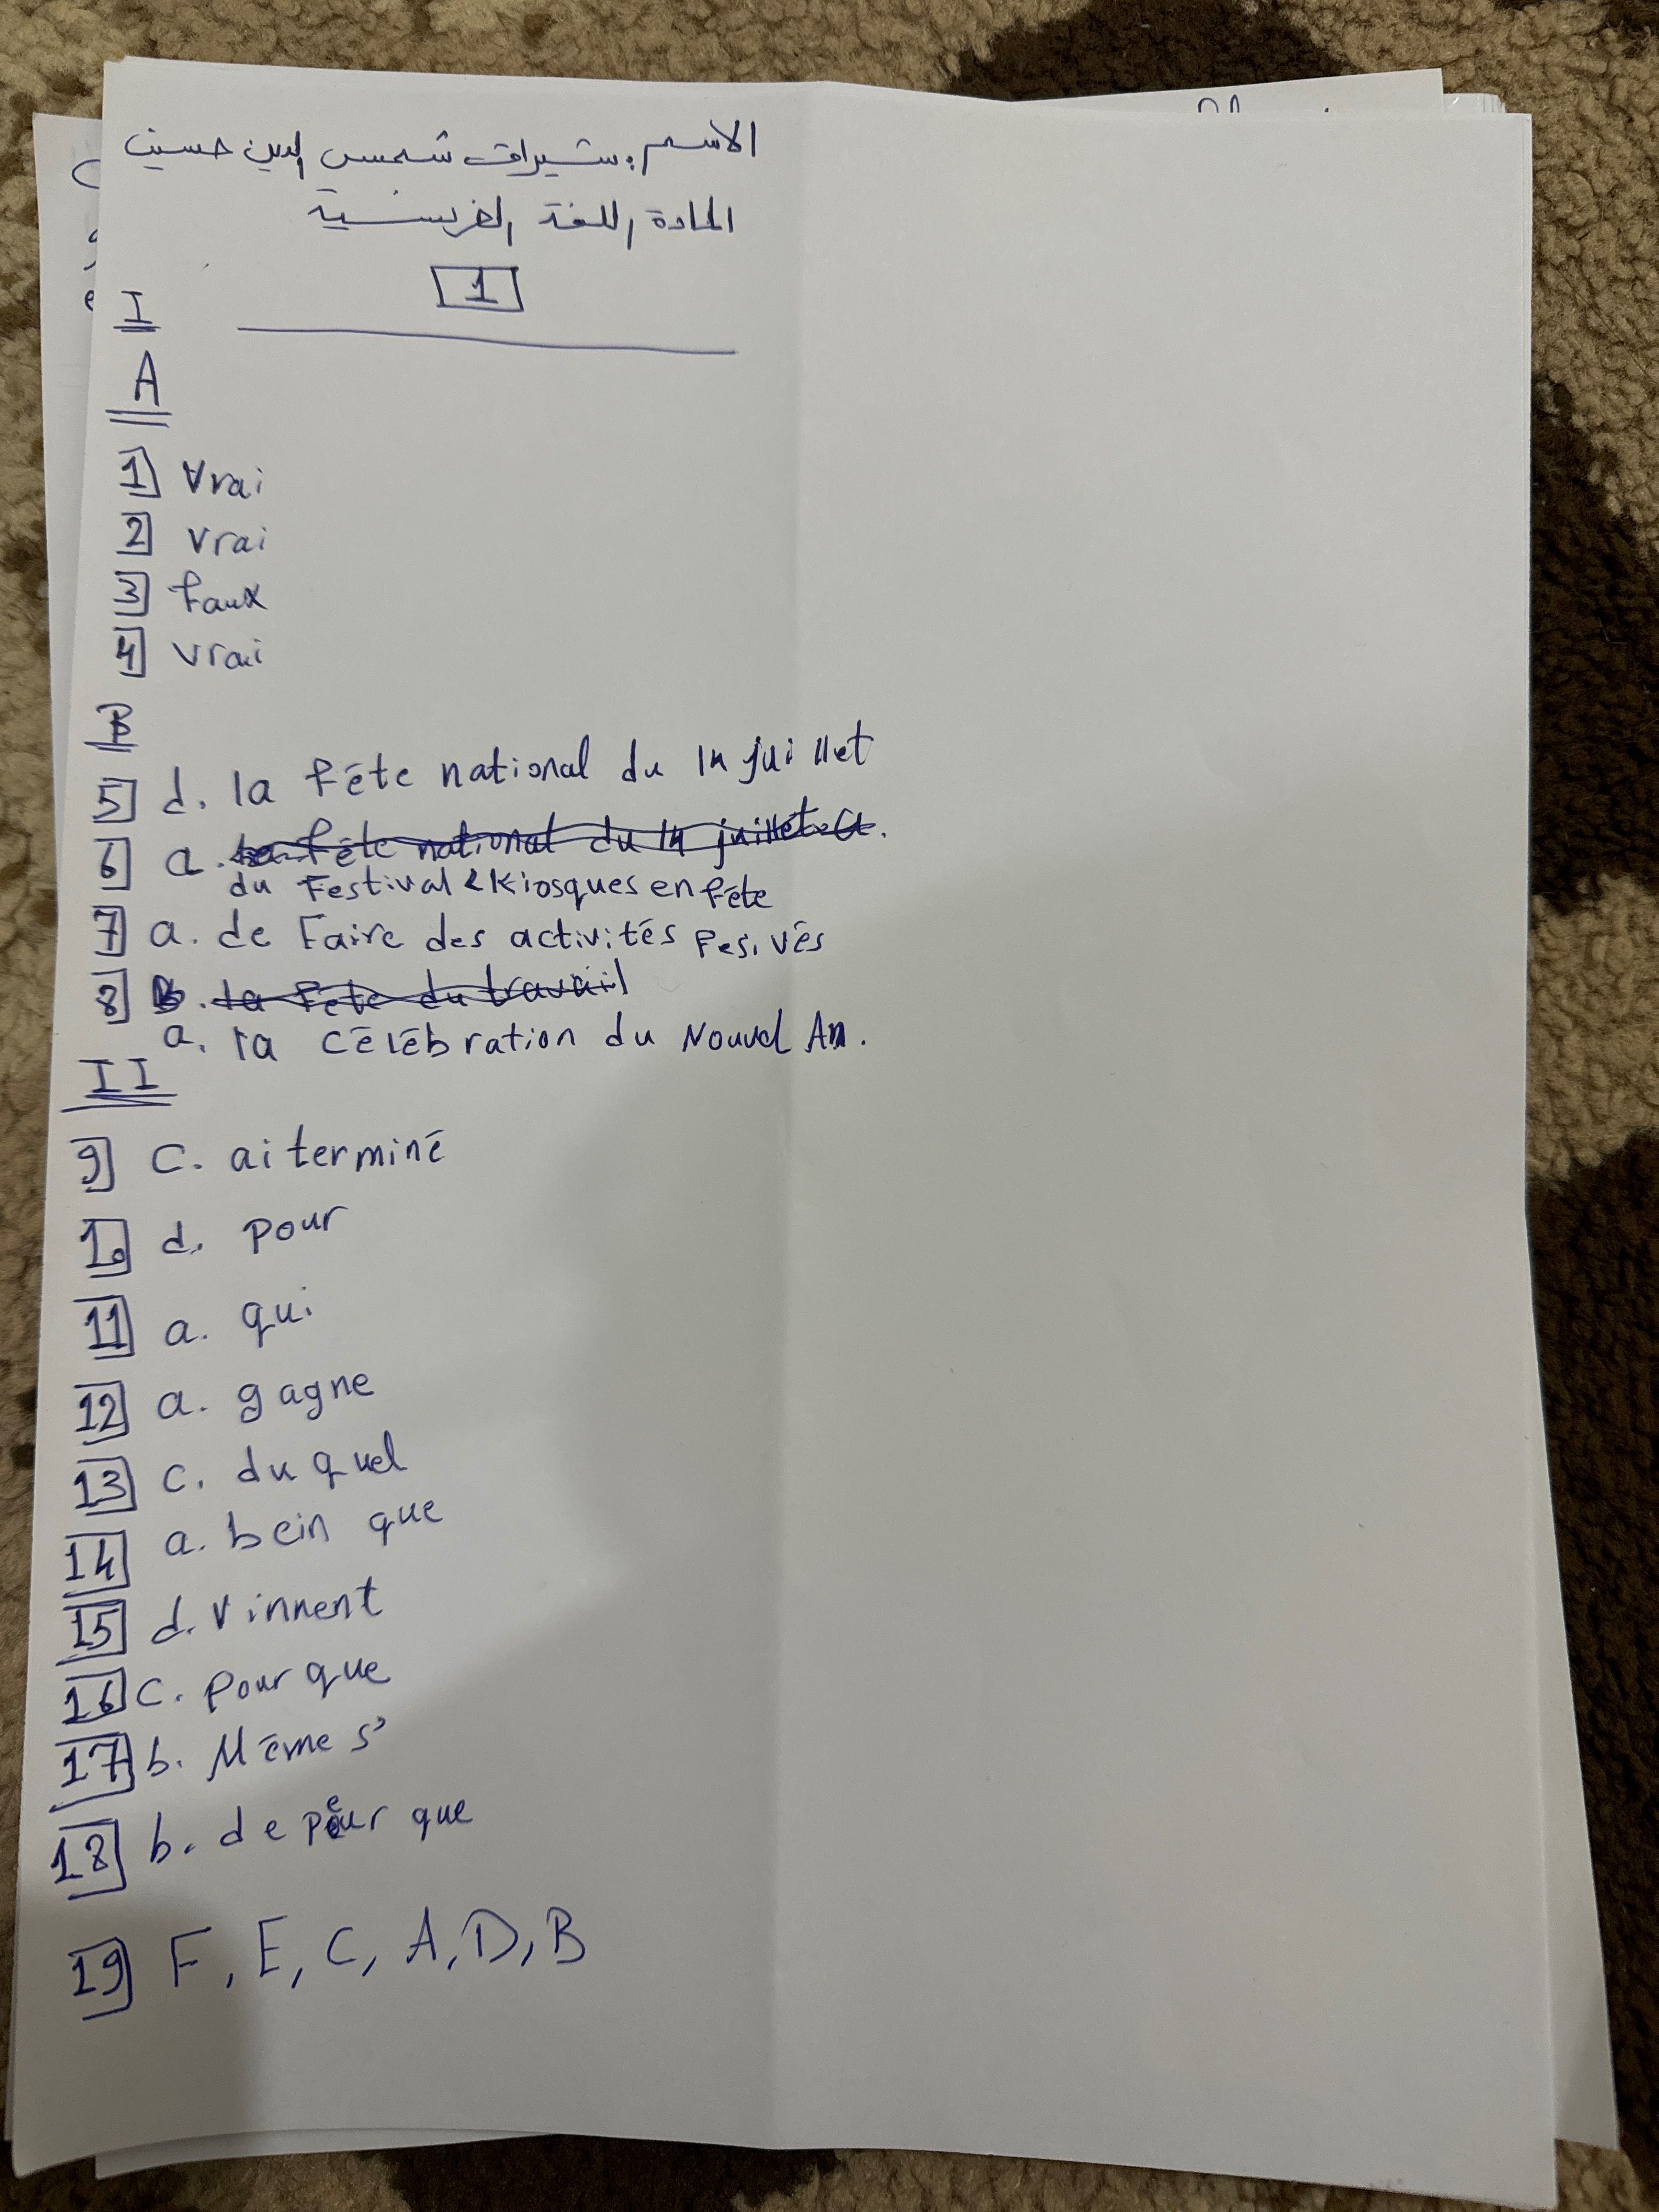 الاسم: شيراف شمس الدين حسين
المادة اللغة الفرنسية
1
I
A
1 Vrai
2 vrai
3 faux
4 vrai
B
5 d. la fête national du 14 juillet
6 a. la fête national du 14 juillet a.
du Festival 2 Kiosques en fête
7 a. de Faire des activités Fesivés
8 b. la Fête du travail
a. la célébration du Nouvel An.
II
9 c. ai terminé
10 d. pour
11 a. qui
12 a. gagne
13 c. du quel
14 a. bein que
15 d. vinnent
16 c. pour que
17 b. Même s'
18 b. de peur que
19 F, E, C, A, D, B